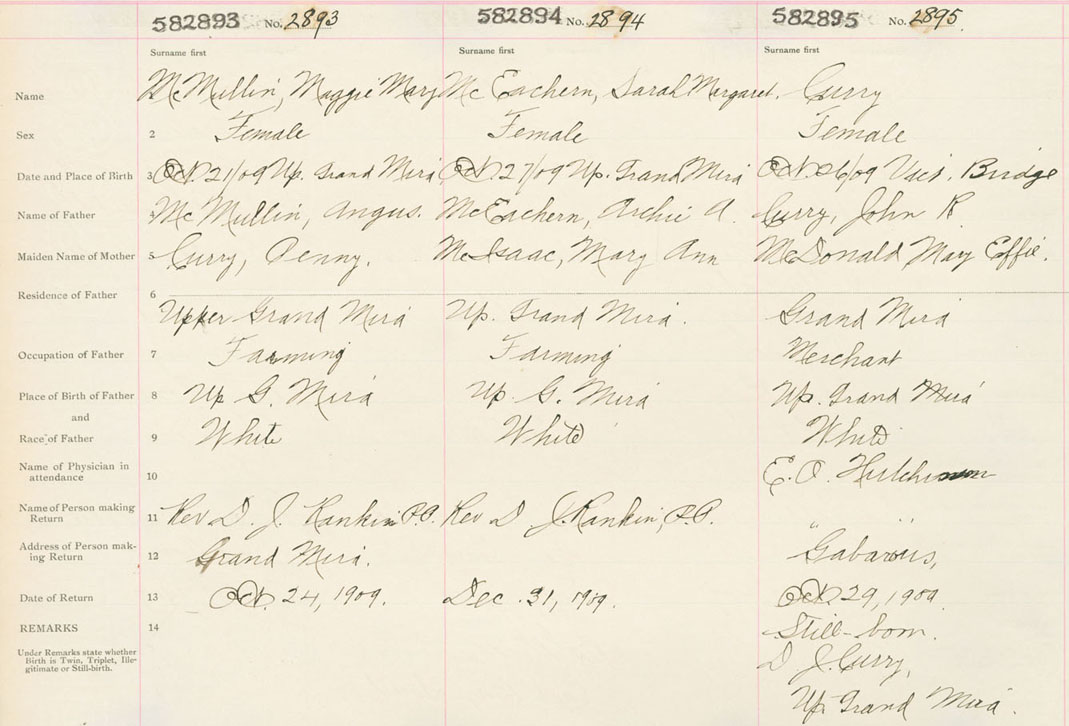 582893 No. 2893 582894 No. 2894 582895 No. 2895
Surname first Surname first Surname first
Name McMullin, Maggie Mary McEachern, Sarah Margaret. Curry
Sex 2 Female Female Female
Date and Place of Birth 3 Oct. 21/09 Up. Grand Mira Oct. 27/09 Up. Grand Mira Oct. 26/09 Vict. Bridge
Name of Father 4 McMullin, Angus. McEachern, Archie A. Curry, John R
Maiden Name of Mother 5 Curry, Penny. McIsaac, Mary Ann McDonald Mary Effie.
Residence of Father 6
Upper Grand Mira Up. Grand Mira. Grand Mira
Occupation of Father 7 Farming Farming Merchant
Place of Birth of Father 8 Up G. Mira Up. G. Mira Up. Grand Mira
and
Race of Father 9 White White White
Name of Physician in
attendance 10 E. O. Hutchinson
Name of Person making
Return 11 Rev D. J. Rankin P.P. Rev D J. Rankin, P.P. " "
Address of Person mak-
ing Return 12 Grand Mira. Gabarous,
Date of Return 13 Oct. 24, 1909. Dec. 31, 1909. Oct. 29, 1909.
REMARKS 14 Still-born.
Under Remarks state whether
Birth is Twin, Triplet, Ille-
gitimate or Still-birth.
D J. Curry,
Up. Grand Mira.